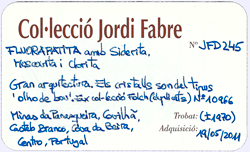 Col·lecció Jordi Fabre
FLUORAPATITA amb Siderita, Nº JFD245
Moscovita i clorita
Gran arquitectura. Els cristalls son del tipus
'olho de boi'. Ex col·lecció Folch (duplicats) Nº 10966
Minas da Panasqueira, Covilhã, Trobat: (±1970)
Castelo Branco, Cova da Beira, Adquisició: 19/05/2011
Centro, Portugal